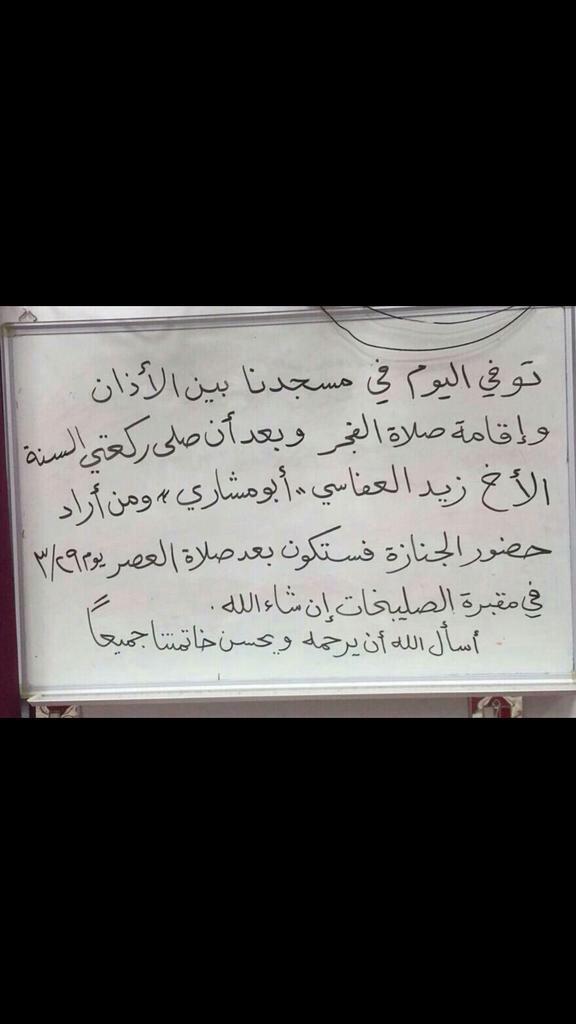 توفي اليوم في مسجدنا بين الأذان
وإقامة صلاة الفجر وبعد أن صلى ركعتي السنة
الأخ زيد العفاسي "أبو مشاري" ومن أراد
حضور الجنازة فستكون بعد صلاة العصر يوم ٣/٢٩
في مقبرة الصليبخات إن شاء الله.
أسأل الله أن يرحمه ويحسن خاتمتنا جميعاً